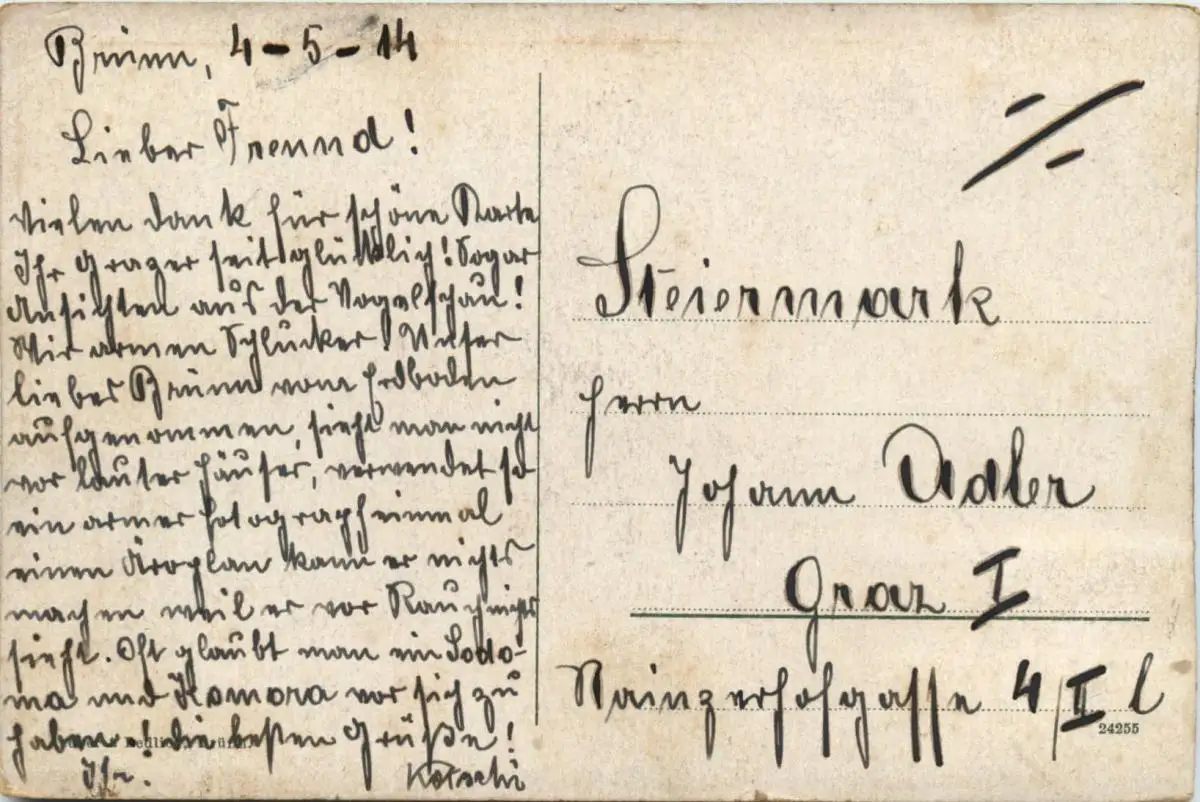 Brünn, 4-5-14
Lieber Freund!
Vielen dank für schöne Karte
Ihr Grazer seit glücklich! Sogar
Ansichten aus der Vogelschau!
Wir armen Schlucker! Unser
liebes Brünn vom Erdboden
aufgenommen, sieht man nicht
vor lauter Häuser, verwendet so
ein armer Fotograph einmal
einen Äroplan kann er nichts
machen weil er vor Rauch nichts
sieht. Oft glaubt man ein Sodo-
ma und Komora vor sich zu
haben! die besten Grüße!
Ihr
Steiermark
Herrn
Johann Adler
Graz I
Rainzerhofgasse 4/I l
24255